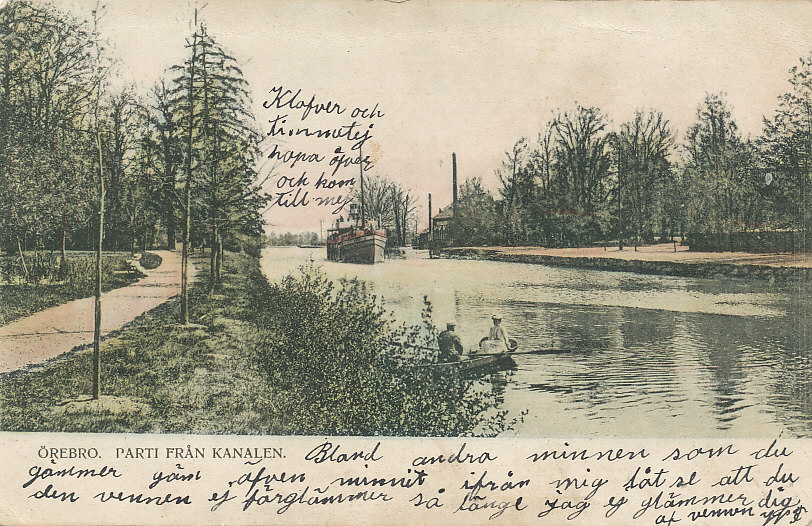 Klafver och
timmotej
hopa öfver
och kom
till mej
ÖREBRO. PARTI FRÅN KANALEN. Bland andra minnen som du
gömmer göm äfven minnit ifrån mig låt se att du
den vennen ej förglämmer så länge jag ej glämmer dig
af vennen